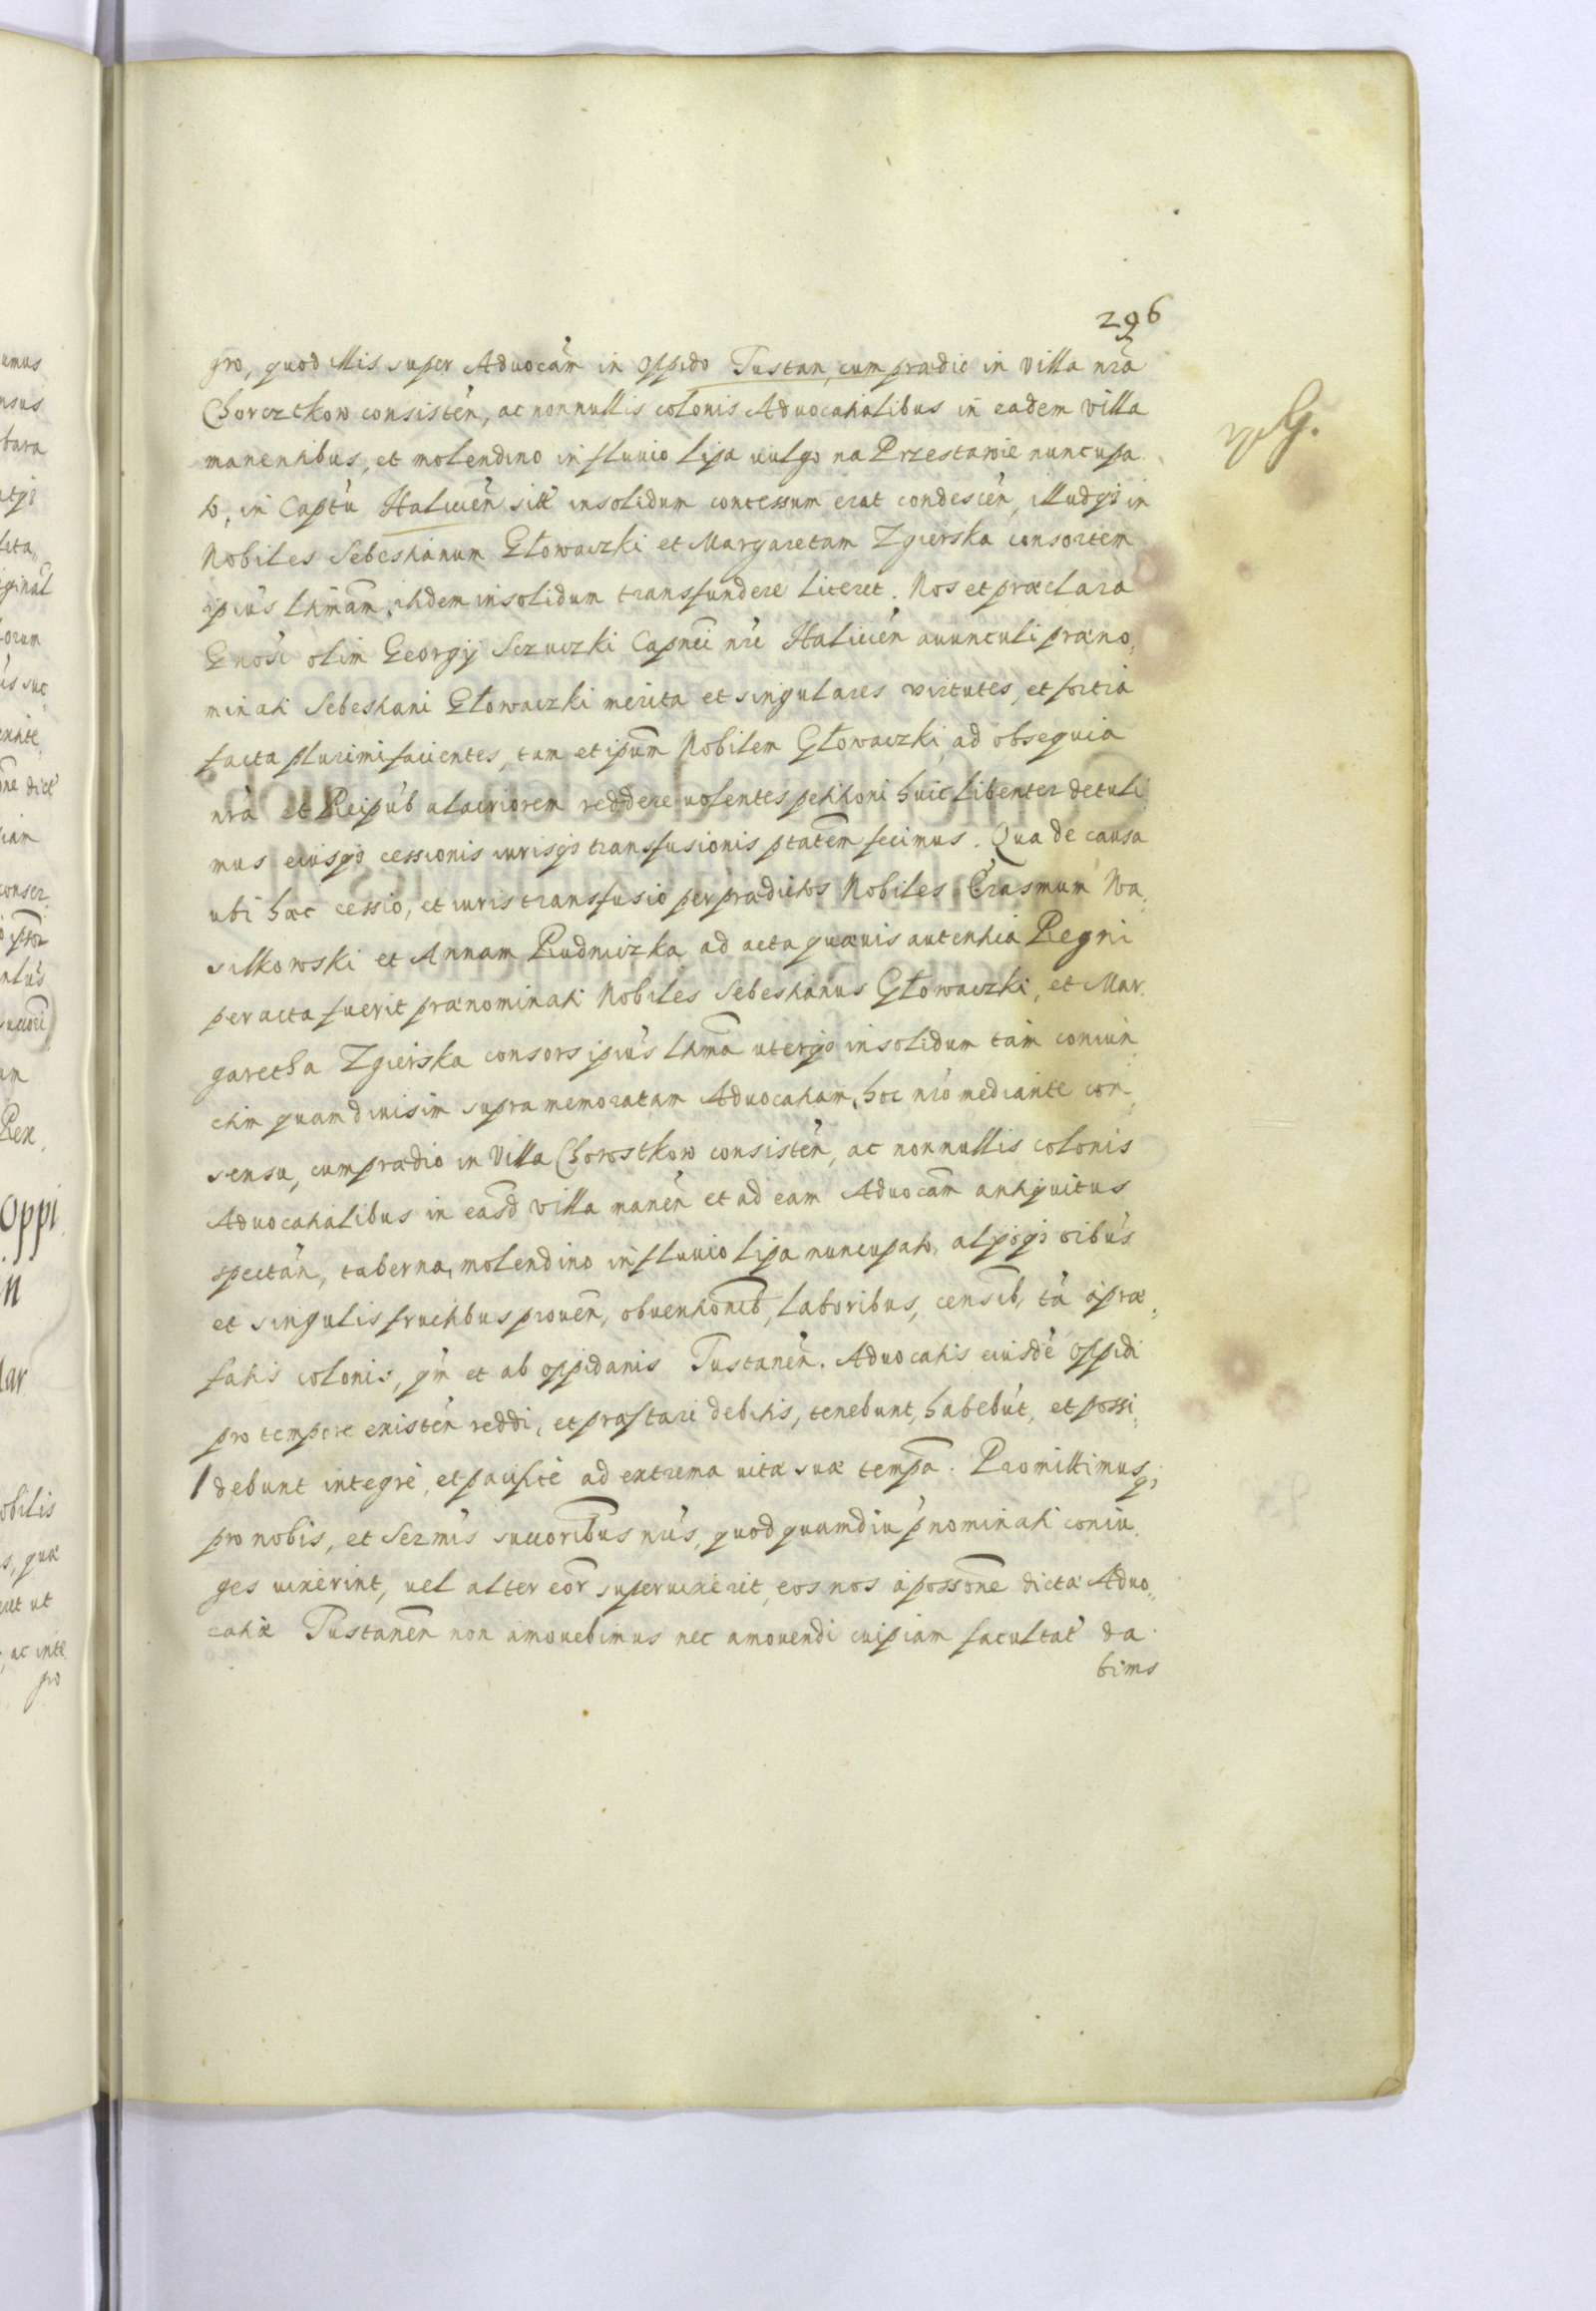 296
pro, quod illis super Aduocãm in oppido Tustan, cum prædio in villa nrã
Chorcztkow consistẽn, ac nonnullis colonis Aduocatialibus in eadem villa
manentibus, et molendino in fluuio Lipa uulgo na Przestawie nuncupa
to, in Captũ Haliciẽn sitt insolidum concessum erat condescẽn, illudq3 in
Nobiles Sebestianum Głowaczki et Margaretam Zgierska consortem
ipius lttimam, itidem insolidum transfundere liceret. Nos et præclara
Gñosi olim Georgij Sczuczki Capnei nri Haliciẽn auunculi præno
minati Sebestiani Głowaczki merita et singulares virtutes, et fortia
facta plurimi facientes, tam et ipũm Nobilem Głowaczki ad obsequia
nra et Reipub alacriorem reddere uolentes petitioni huic libenter detuli
mus eiusq3 cessionis iurisq3 transfusionis ptatẽm fecimus. Qua de causa
ubi hæc cessio, et iuris transfusio per prædictos Nobiles Erasmum Wa
silkowski et Annam Rudniczka ad acta quæuis autentica Regni
peracta fuerit prænominati Nobiles Sebestianus Głowaczki, et Mar
garetha Zgierska consors ipius lttma uterq3 insolidum tam coniun
ctim quam diuisim supra memoratam Aduocatiam, hoc nro mediante con
sensu, cum prædio in Villa Chorostkow consistẽn, ac nonnullis colonis
Aduocatialibus in easd villa manẽn et ad eam Aduocãm antiquitus
spectãn, taberna, molendino in fluuio Lipa nuncupato, aliisq3 oĩbus
et singulis fructibus prouẽn, obuentionib, laboribus, censib, tã a præ
fatis colonis, qm et ab oppidanis Tustanẽn. Aduocatis eiusdẽ oppidi
pro tempore existẽn reddi, et præstari debitis, tenebunt, habebũt, et possi
debunt integrè, et pacificè ad extrema uitæ suæ tempa. Promittimusq3
pro nobis, et Sermis succoribus nris, quod quamdiu pnominati coniu
ges uixerint, uel alter eor superuixerit, eos nos a possone dictæ Aduo
catiæ Tustanẽn non amouebimus nec amouendi cuipiam facultat da
bims